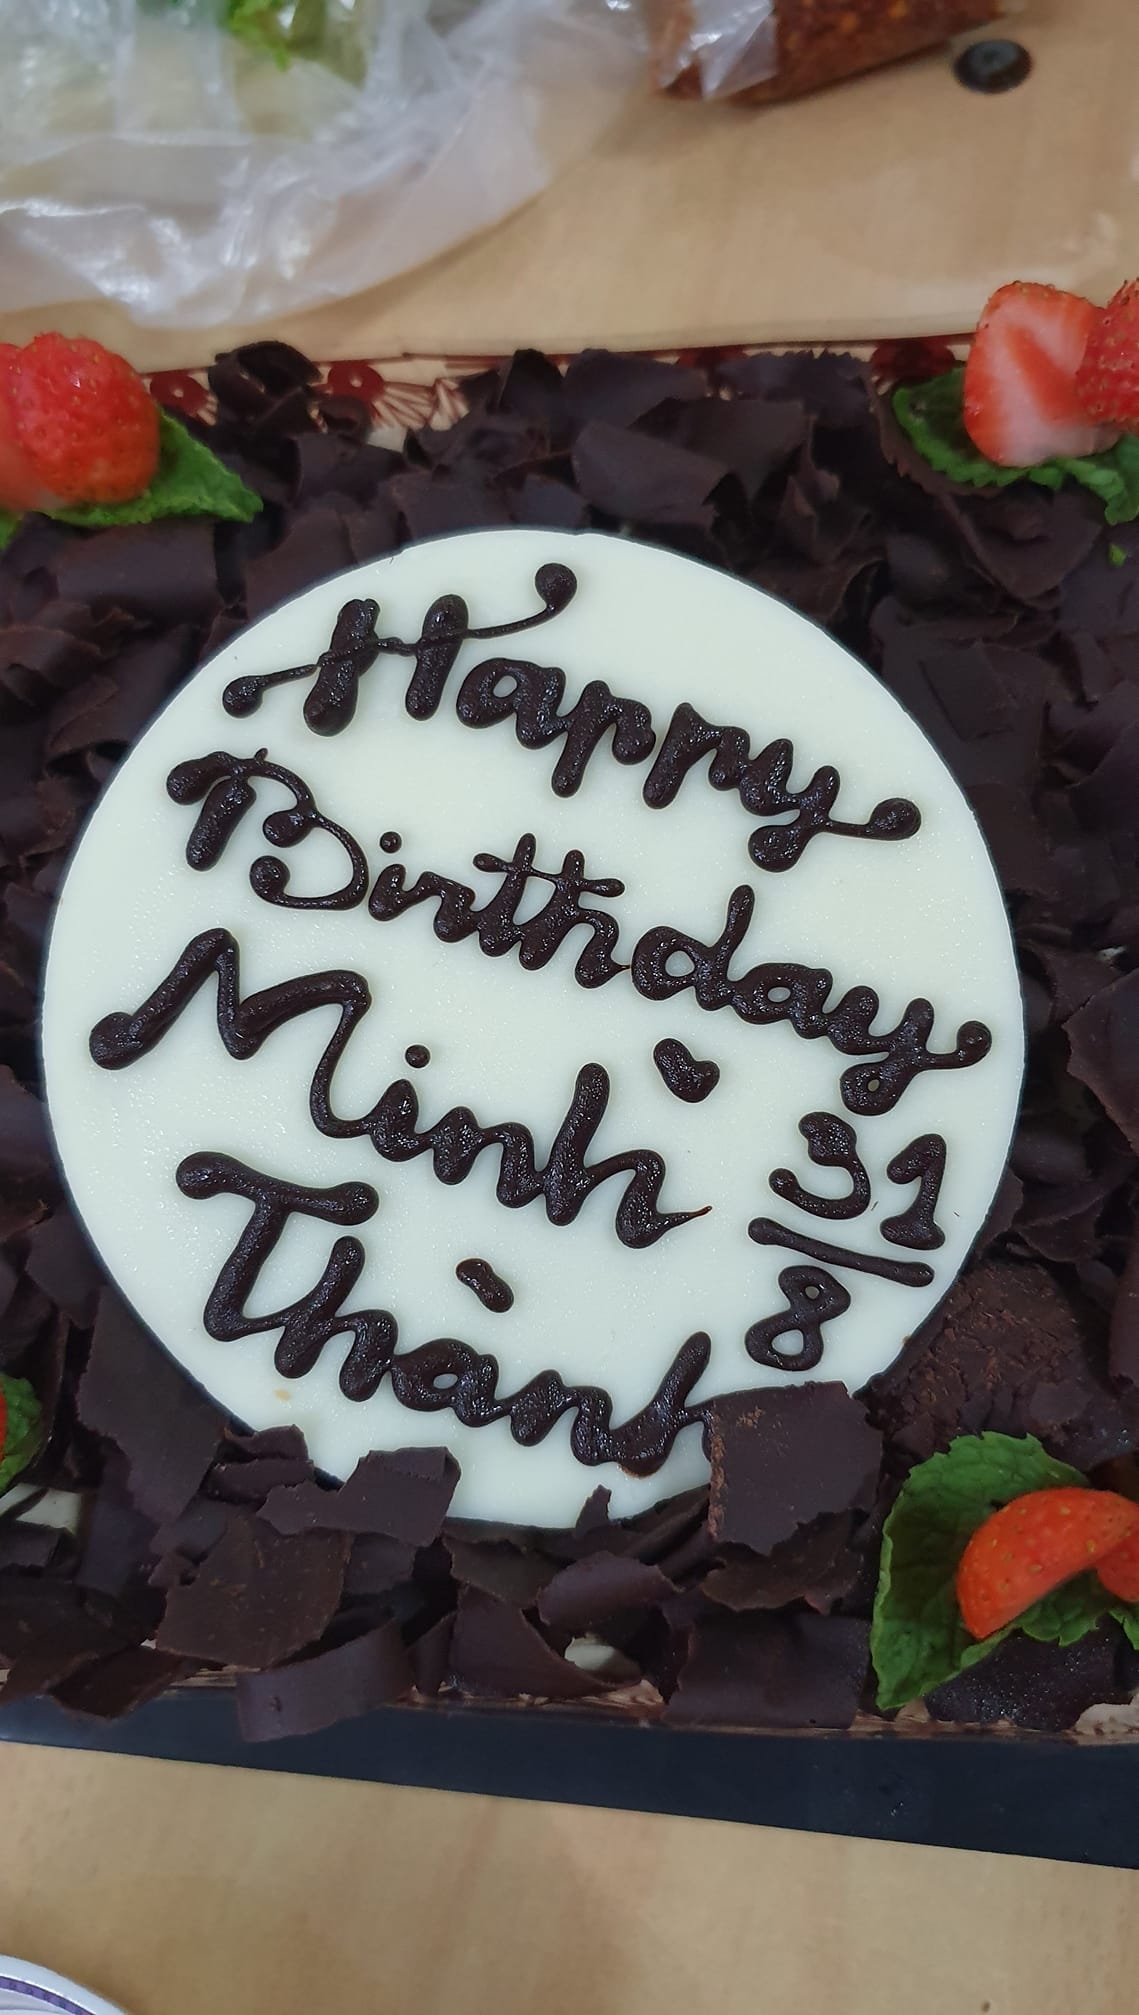 Happy
Birthday
Minh
Thành
31/8